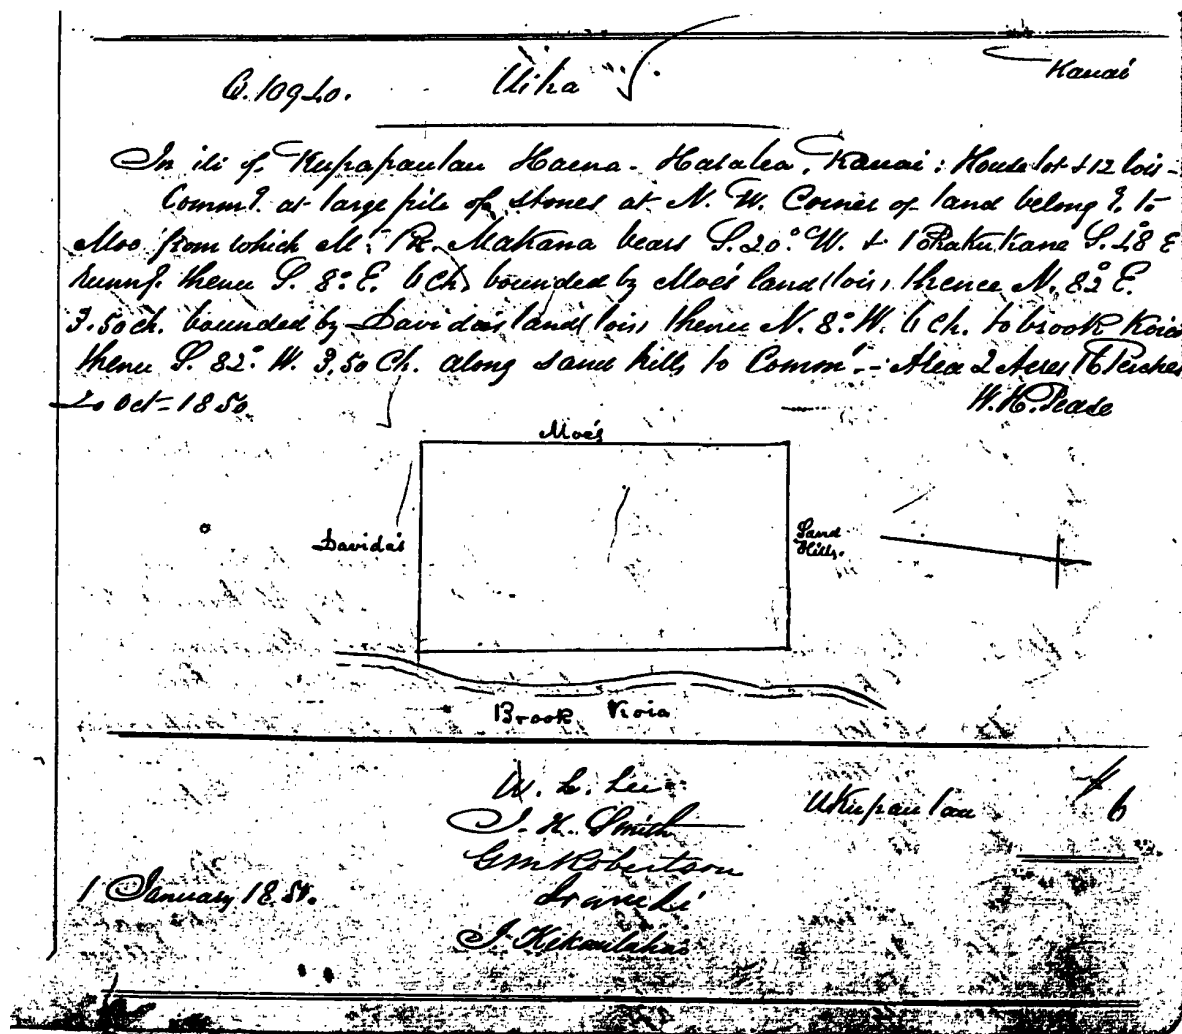 Q. 10940. Uika Kauai
In ili of Kupapaulau Haena - Halalea, Kauai : House lot & 12 lois -
Commg. at large pile of stones at N. W. Corner of land belongg. to
Moe from which Mt. Pk. Makana bears S. 20° W. & Pohakukane S. 48° E
runng. thence S. 8° E. 6 ch. bounded by Moe's land lois, thence N. 82° E.
3.50 ch. bounded by Davida's land lois thence N. 8° W. 6 Ch. to brook Koia
thence S. 82° W. 3.50 Ch. along sand hills to Commt. - Area 2 Acres 16 Perches
20 Oct - 1850 W. H. Pease
Moe's
Davida's
Sand
Hills.
Brook Koia
W. L. Lee
J. H. Smith Ukupaulau 6
G M Robertson
1 January 18
J. Kekaulahao